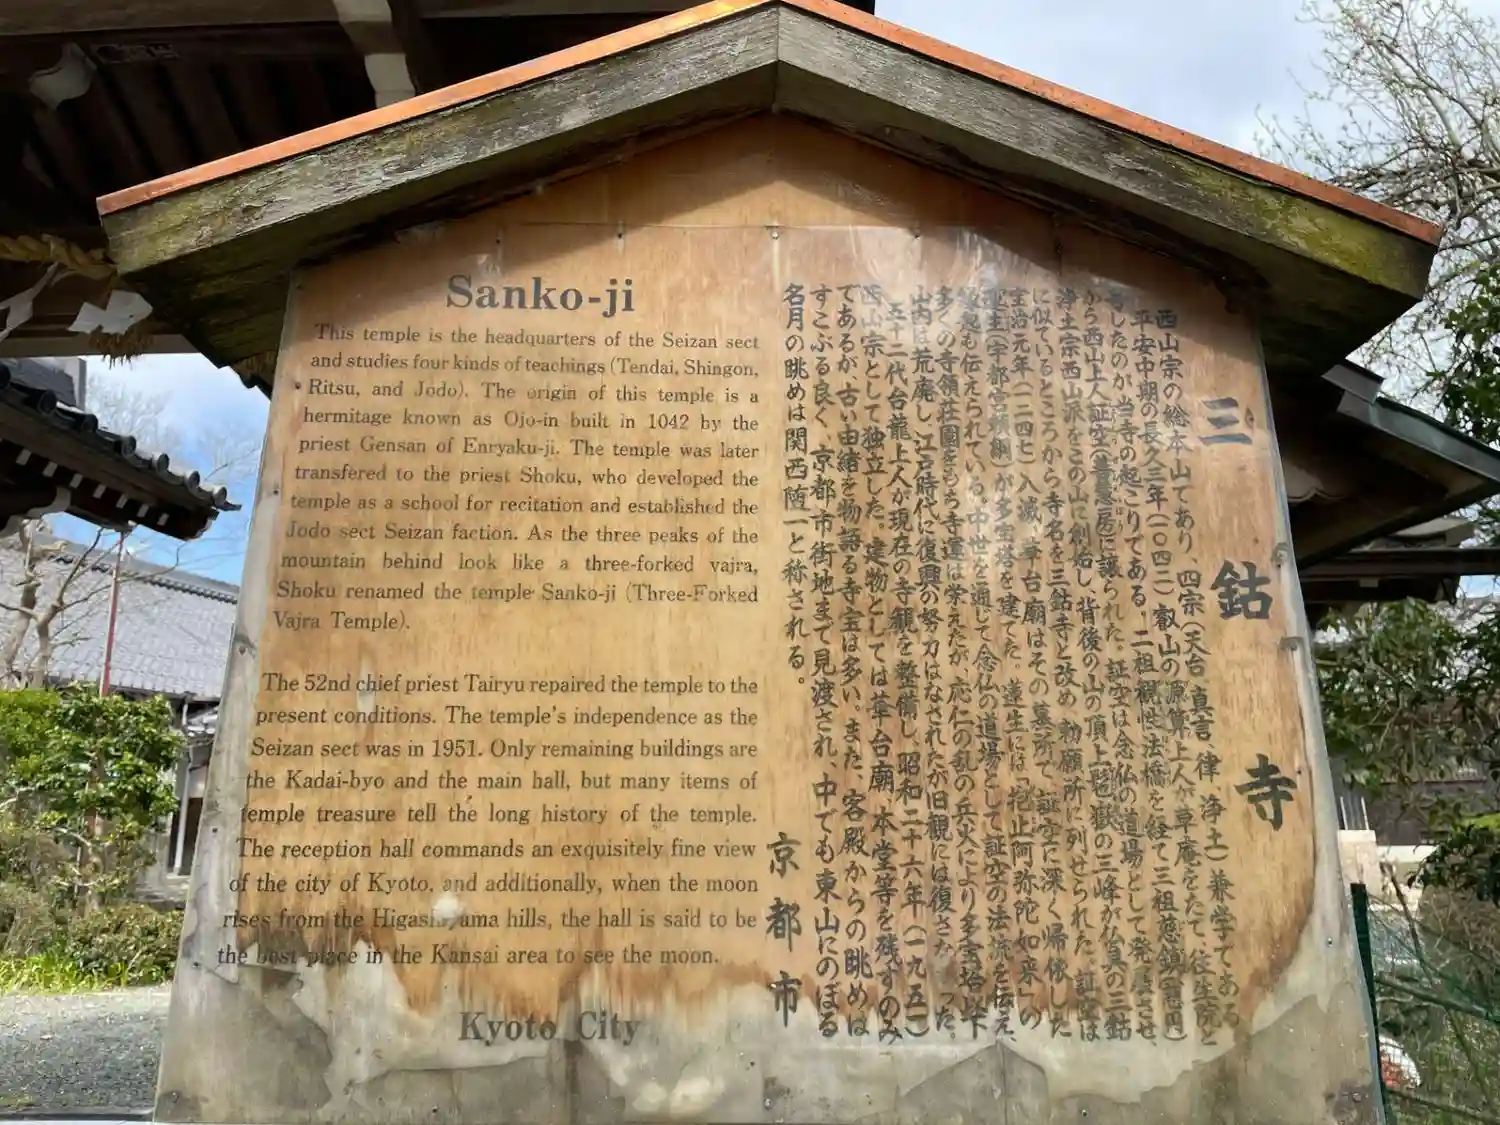 Sanko-ji
This temple is the headquarters of the Seizan sect
and studies four kinds of teachings (Tendai, Shingon,
Ritsu, and Jodo). The origin of this temple is a
hermitage known as Ojo-in built in 1042 by the
priest Gensan of Enryaku-ji. The temple was later
transfered to the priest Shoku, who developed the
temple as a school for recitation and established the
Jodo sect Seizan faction. As the three peaks of the
mountain behind look like a three-forked vajra,
Shoku renamed the temple Sanko-ji (Three-Forked
Vajra Temple).
The 52nd chief priest Tairyu repaired the temple to the
present conditions. The temple's independence as the
Seizan sect was in 1951. Only remaining buildings are
the Kadai-byo and the main hall, but many items of
temple treasure tell the long history of the temple.
The reception hall commands an exquisitely fine view
of the city of Kyoto, and additionally, when the moon
rises from the Higashiyama hills, the hall is said to be
the best place in the Kansai area to see the moon.
Kyoto City
三鈷寺
西山宗の総本山であり、四宗(天台、真言、律、浄土)兼学である。
平安中期の長久三年(一〇四二)叡山の源算上人が草庵をたて、往生院と
号したのが当寺の起こりである。二祖観性法橋を経て三祖慈鎮(慈円)
から西山上人証空(善慧房)に譲られた。証空は念仏の道場として発展させ、
浄土宗西山派をこの山に創始し、背後の山の頂上毱嶽の三峰が仏具の三鈷
に似ているところから寺名を三鈷寺と改め、勅願所に列せられた。証空は
宝治元年(一二四七)入滅、華台廟はその墓所で、証空に深く帰依した
蓮生(宇都宮頼綱)が多宝塔を建てた。蓮生には「抱止阿弥陀如来」の
縁起も伝えられている。中世を通じて念仏の道場として証空の法流を伝え、
多くの寺領荘園をもち寺運は栄えたが、応仁の乱の兵火により多宝塔以下
山内は荒廃し、江戸時代に復興の努力はなされたが旧観には復さな った。
五十二代台龍上人が現在の寺観を整備し、昭和二十六年(一九五一)
西山宗として独立した。建物としては華台廟、本堂等を残すのみ
であるが、古い由緒を物語る寺宝は多い。また、客殿からの眺めは
すこぶる良く、京都市街地まで見渡され、中でも東山にのぼる
名月の眺めは関西随一と称される。
京都市